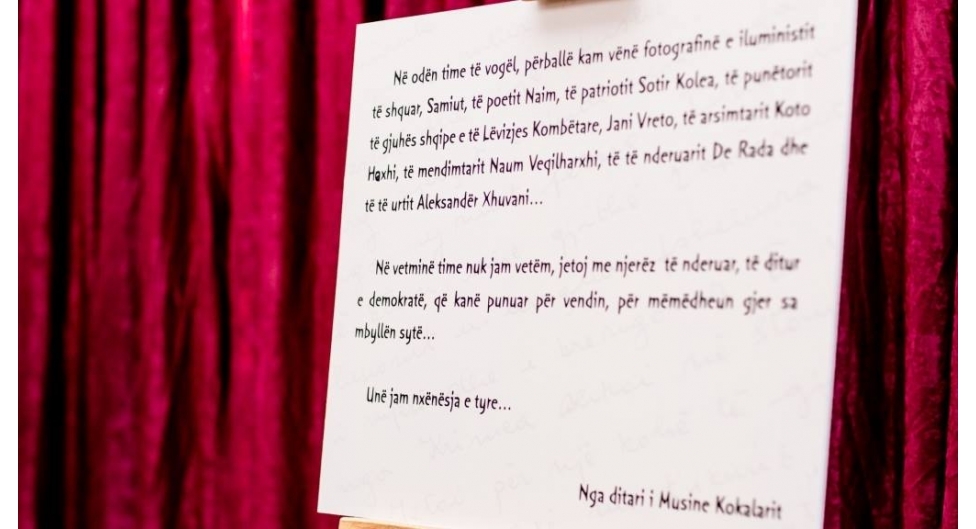 Në odën time të vogël, përballë kam vënë fotografinë e iluministit
të shquar, Samiut, të poetit Naim, të patriotit Sotir Kolea, të punëtorit
të gjuhës shqipe e të Lëvizjes Kombëtare, Jani Vreto, të arsimtarit Koto
Hoxhi, të mendimtarit Naum Veqilharxhi, të të nderuarit De Rada dhe
të të urtit Aleksandër Xhuvani...
Në vetminë time nuk jam vetëm, jetoj me njerëz të nderuar, të ditur
e demokratë, që kanë punuar për vendin, për mëmëdheun gjer sa
mbyllën sytë...
Unë jam nxënësja e tyre...
Nga ditari i Musine Kokalarit